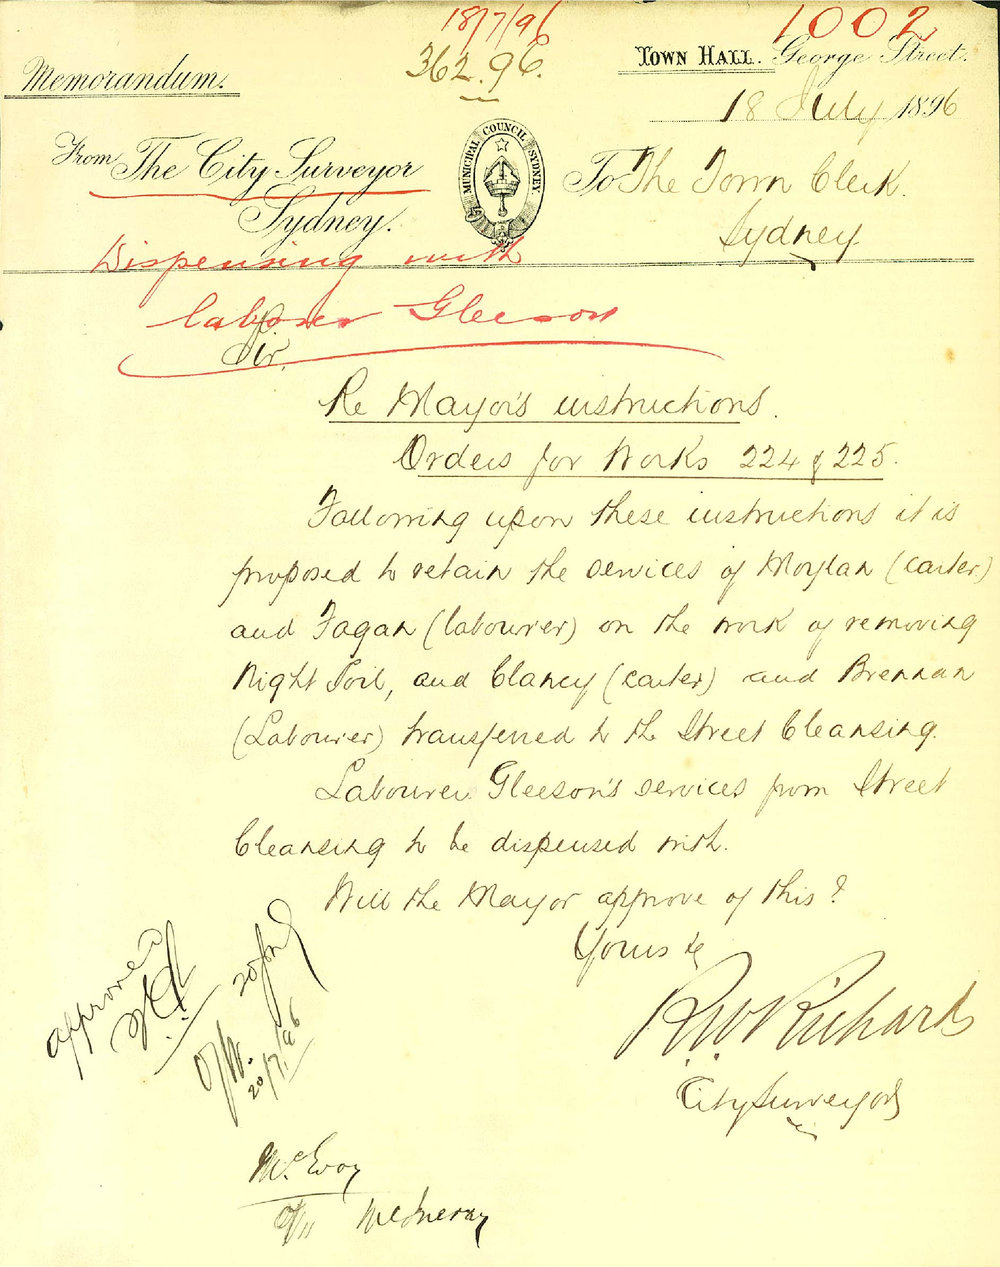 18/7/96
1002
362.96.
Town Hall. George Street.
Memorandum.
18 July 1896
From The City Surveyor
Sydney.
MUNICIPAL COUNCIL SYDNEY
To The Town Clerk.
Sydney
Dispensing with
labourer Gleeson
Sir,
Re Mayor's instructions.
Orders for Works 224 & 225.
Following upon these instructions it is
proposed to retain the services of Moylan (carter)
and Fagan (labourer) on the work of removing
Night Soil, and Clancy (carter) and Brennan
(Labourer) transferred to the Street Cleansing.
Labourer Gleeson's services from Street
Cleansing to be dispensed with.
Will the Mayor approve of this?
Yours &c
R.W. Richards
City Surveyor
approved
20
O/W.
20/7/96
McEvoy